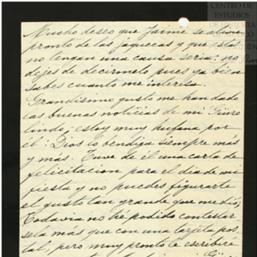 CENTRO DE
ESTUDIOS
Mucho deseo que Jaime se alivie
pronto de las jaquecas y que éstas
no tengan una causa seria: no
dejes de decírmelo pues ya bien
sabes cuanto me interesa.
Grandísimo gusto me han dado
las buenas noticias de mi
lindo; estoy muy ufana por
él: Dios lo bendiga siempre más
y más. Tuve de él una carta de
felicitación para el día de mi
fiesta y no puedes figurarte
el gusto tan grande que me dió;
Todavía no he podido contestar
sela más que con una tarjeta pos
tal, pero muy pronto le escribiré